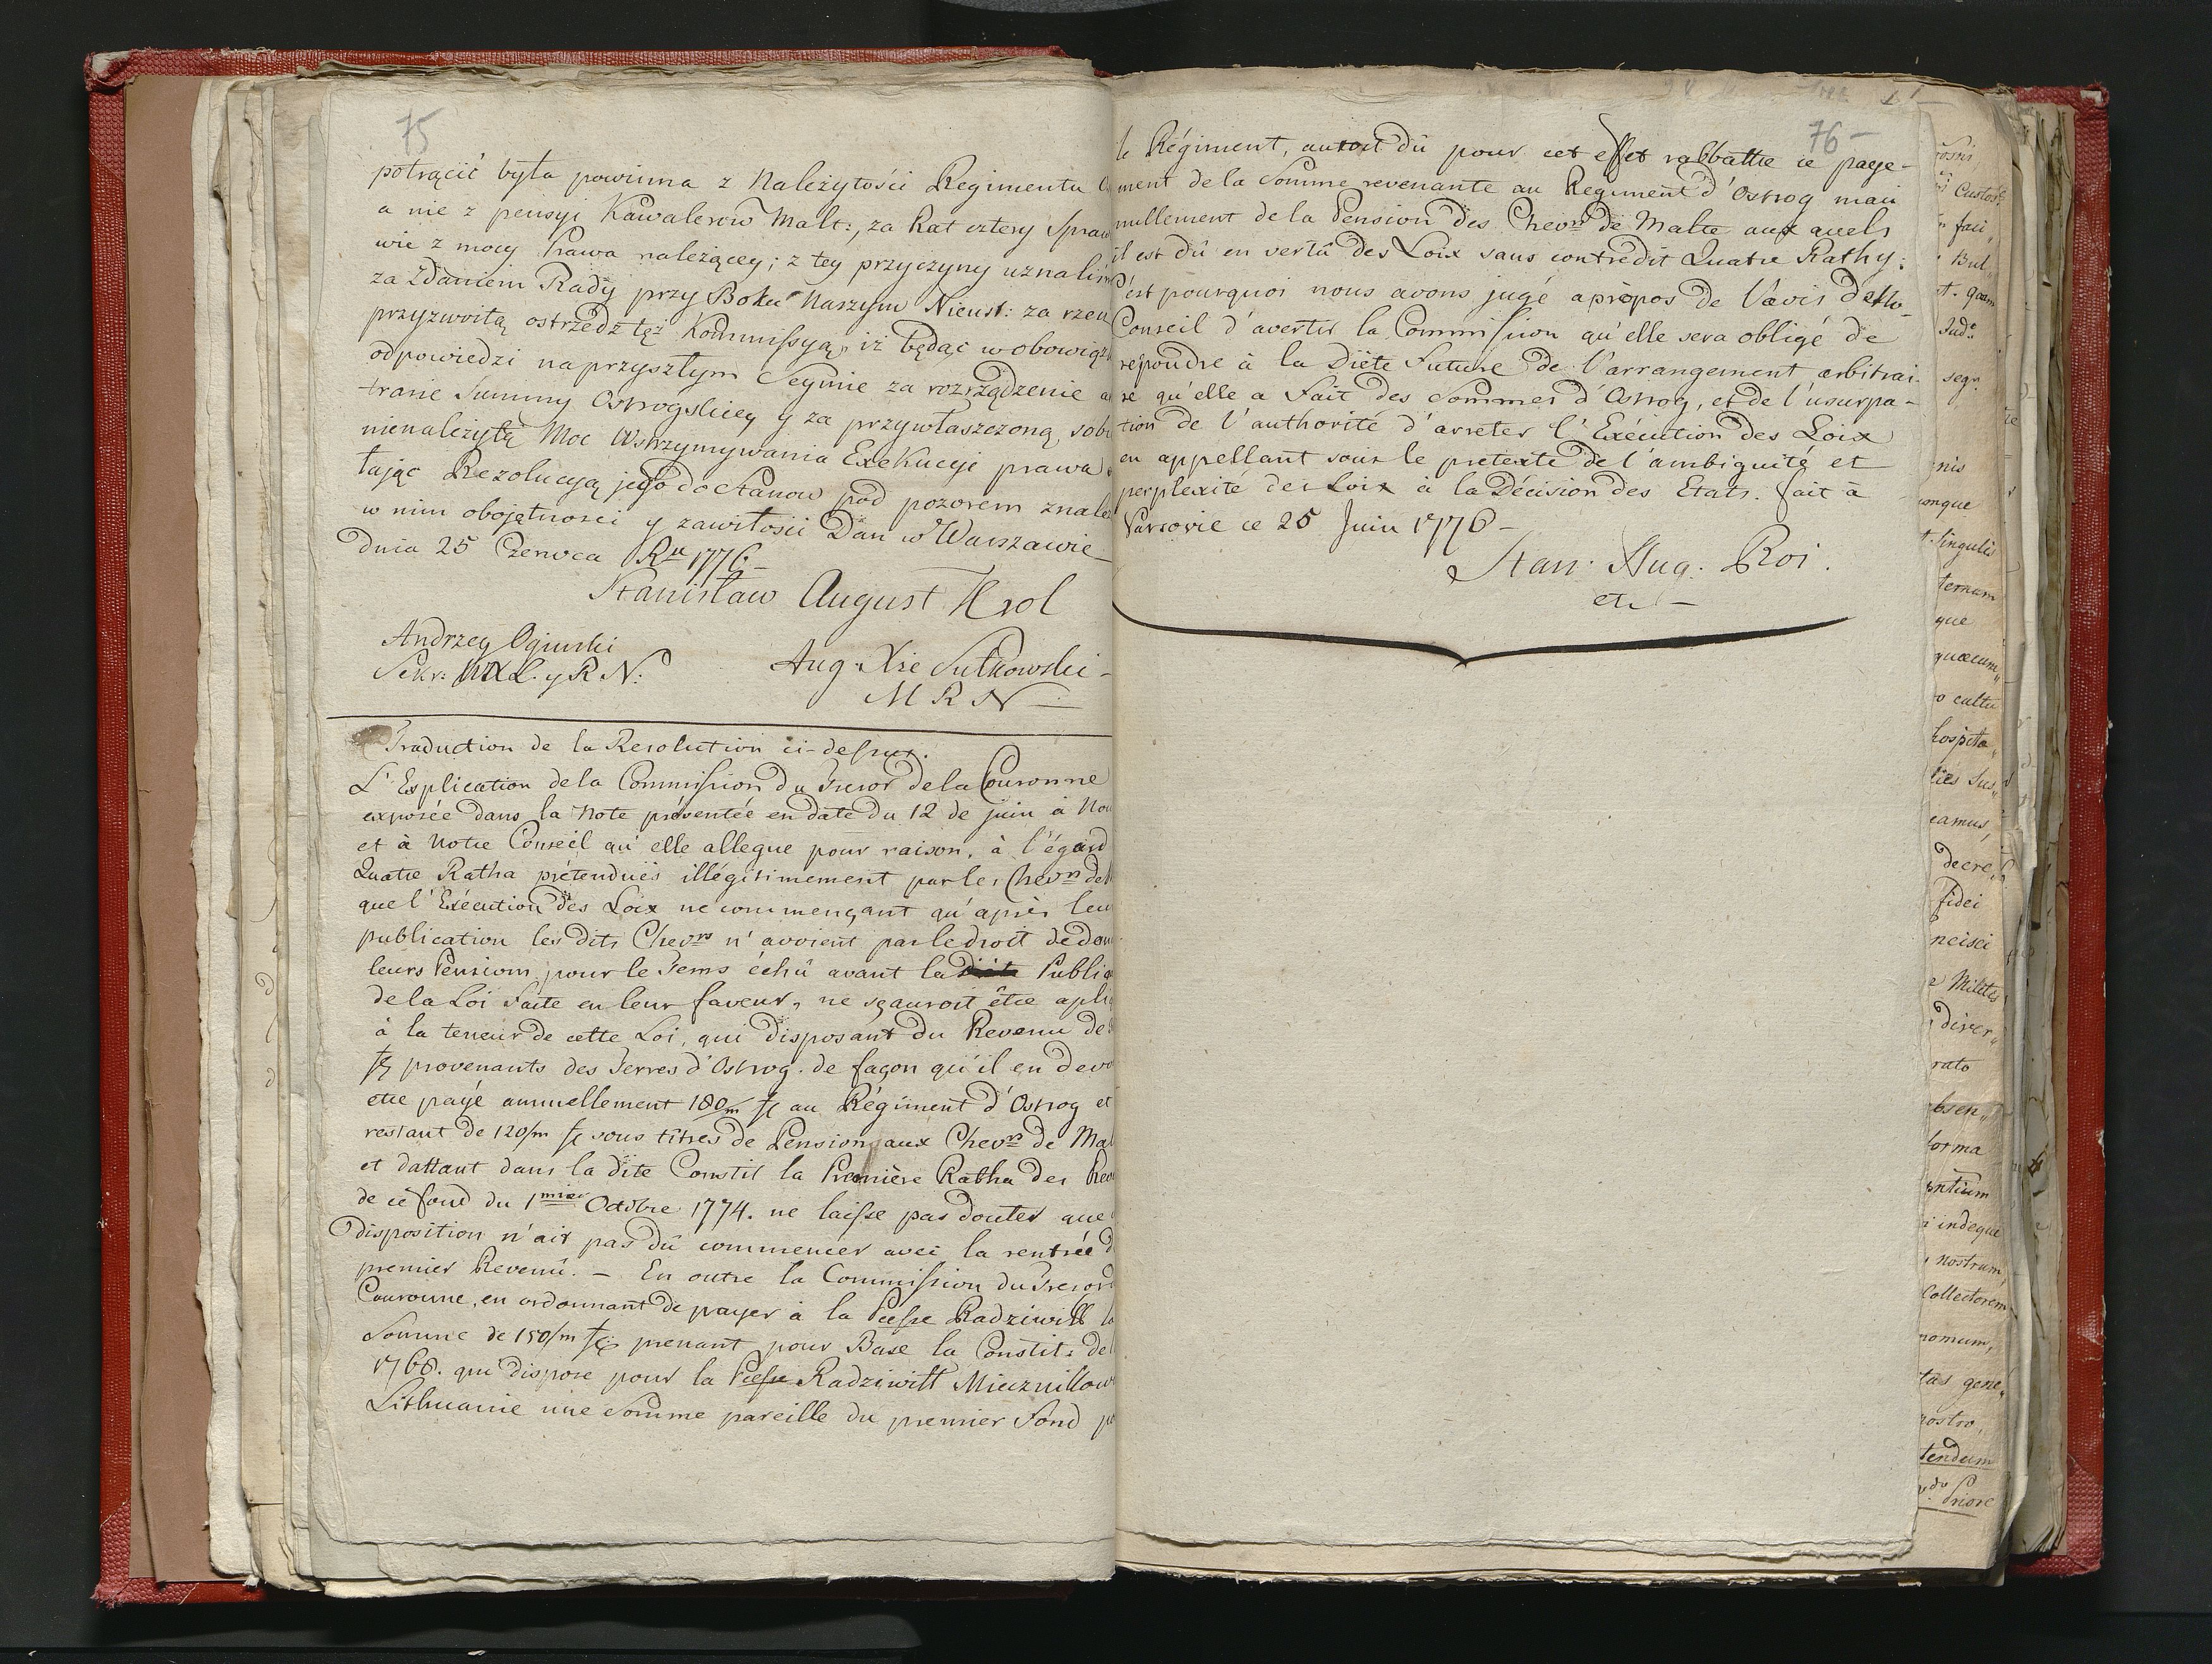 75
potrącić była powinna z Należytości Regimentu
a nie z pensyi Kawalerow Malt:, za Rat cztery Spraw
wie z mocy Prawa należącey; z tey przyczyny uznaliśm
za Zdaniem Rady przy Boku Naszym Nieust: za rzecz
przyzwoitą ostrzedz tęż Kommissyą, iż będąc w obowiązk
odpowiedzi na przyszłym Seymie za rozrządzenie
tranie Summy Ostrogskiey y za przywłaszczoną sobi
nienależytą Moc Wstrzymywania Exekucyi prawa
łając Rezolucyą jego do Stanow pod pozorem znale
w nim obojętnosci y zawiłości Dan w Warszawie
Dnia 25 Czerwca Ru 1776 –
Stanisław August Krol
Andrzey Oginski
Sekr: WXL. y R N:
Aug. Xże Sułkowski –
M R N –
Traduction de la Resolution ci-dessus.
L'Explication de la Commission du Tresor de la Couronne
exposée dans la Note présentée en date du 12 de juin à Nou
et à Notre Conseil qu'elle allegue pour raison, à l'égard
Quatre Ratha prétendües illégitimement par les Chevrs de
que l'Exécution des Loix ne commençant qu'après leur
publication les dits Chevrs n'avoient pas le droit de dem
leurs Pensions pour le Tems échû avant la Diète Public
de la Loi Faite en leur faveur, ne sçauroit être apliq
à la teneur de cette Loi, qui disposant du Revenu de
provenants des Terres d'Ostrog. de façon qu'il en devo
etre payé annuellement 180/m au Régiment d'Ostrog et
restant de 120/m sous titres de Pension aux Chevrs de Mal
et dattant dans la dite Constit la Première Ratha des Rev
de ce fond du 1mier Octobre 1774. ne laisse pas douter que
Disposition n'ait pas dû commencer avec la rentrée d
premier Revenû. – En outre la Commission du Tresor
Couronne, en ordonnant de payer à la Pcesse Radziwill la
Somme de 150/m prenant pour Base la Constit: de
1768. qui dispose pour la Pcesse Radziwill Miecznikow
Lithuanie une Somme pareille du premier Fond p
76 –
le Régiment, auroit dû pour cet effet rabbattre ce paye-
ment de la Somme revenante au Regiment d'Ostrog mais
nullement de la Pension des Chevrs de Malte aux quels
il est dû en vertû des Loix sans contredit Quatre Rathy:
C'est pourquoi nous avons jugé apropos de l'avis de No-
Conseil d'avertir la Commission qu'elle sera obligé de
répondre à la Diète Future de l'arrangement arbitrai-
re qu'elle a Fait des Sommes d'Ostrog, et de l'usurpa-
tion de l'authorité d'arreter l'Exécution des Loix
en appellant sous le pretexte de l'ambiguité et
perplexité des Loix à la Décision des Etats. fait à
Varsovie ce 25 Juin 1776 –
Stan. Aug. Roi.
etc –
Custos
faci„
Bul„
segr.
nis
singulis
ternam
que
quæcum„
o cultu
hospita„
eamus,
decre„
fidei
Milites
diver„
rato
forma
indeque
nostrum,
Collectorem
nomum,
tas gene„
nostro,
tendum
Priore